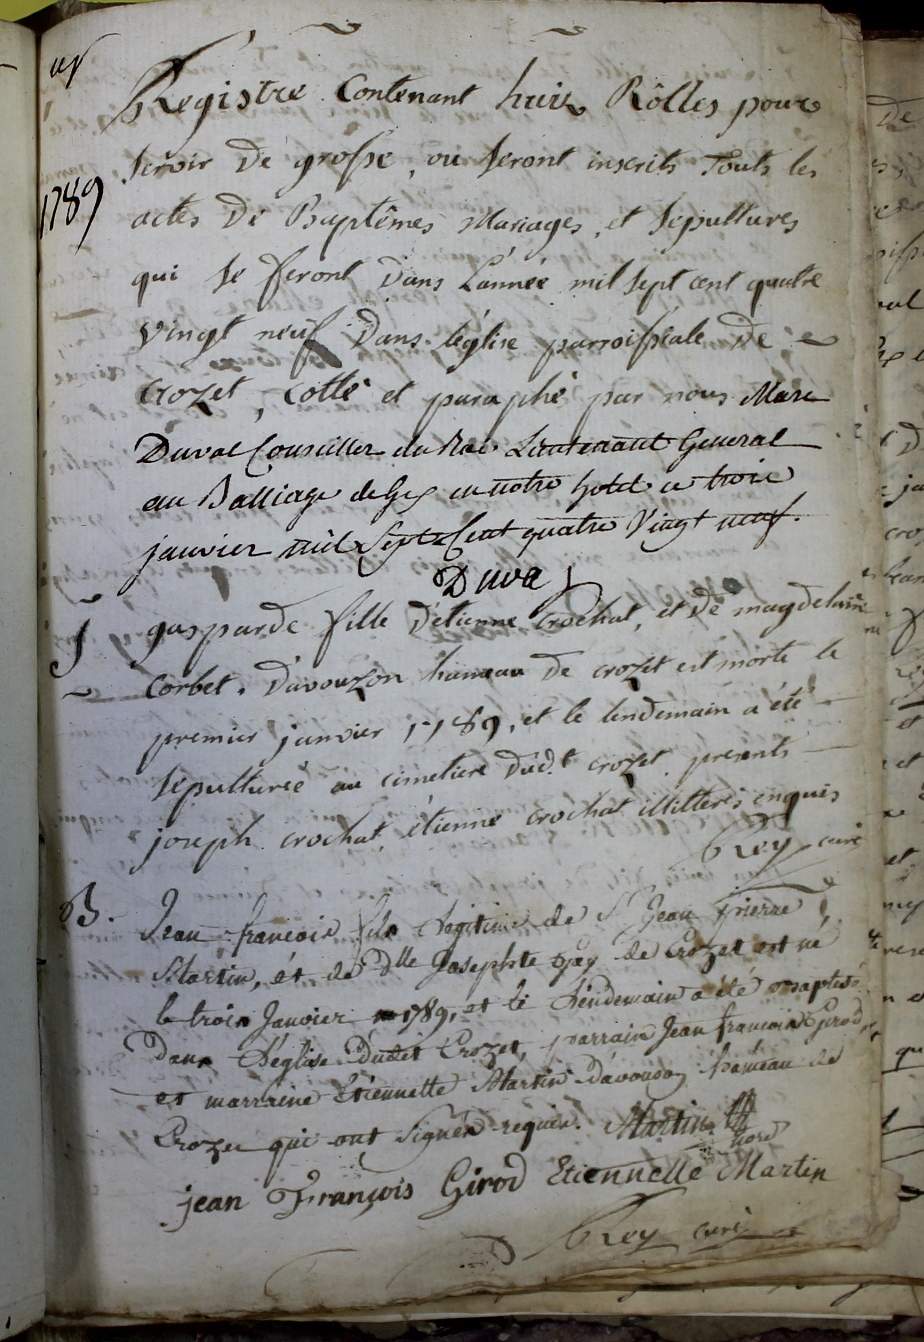 1789
Registre Contenant huit Rôlles pour
servir De grosse, ou seront inscrits Touts les
actes De Baptêmes Mariages, et sepultures
qui se feront Dans L'année mil sept cent quatre
vingt neuf Dans l'église parroissiale De
Crozet, Cotté et paraphé par nous Marc
Duval Conseiller du Roi Lieutenant General
au Balliage de Gex en notre hotel ce trois
janvier mil Sept Cent quatre Vingt neuf.
Duval
S
gasparde fille d'étienne Crochat, et De magdelaine
Corbet, D'avouzon hameau de crozet est morte le
premier janvier 1789, et le lendemain a été
sepulturée au cimetiere dud.t crozet presents
joseph crochat, étienne crochat illitterés enquis
Rey curé
B.
Jean françois fils Légitime de Sr Jean pierre
Martin, et de Dlle Josephte Gay de Crozet est né
le trois Janvier 1789, et le Lendemain a été Baptisé
Dans L'église Dudet Crozet, parrain Jean francois Girod
et marraine Etiennette Martin D'avouzon hameau de
Crozet qui ont Signés requis. Martin
jean François Girod Etiennette Martin
Rey curé